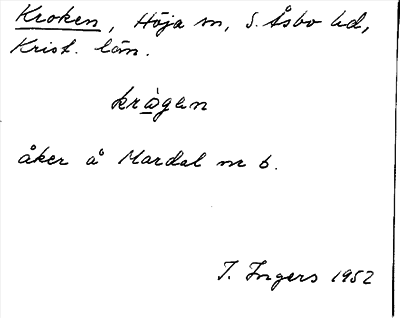 Kroken, Höja sn, S. Åsbo hd,
Krist. län.
krågan
åker å Mardal nr 6.
I. Ingers 1952